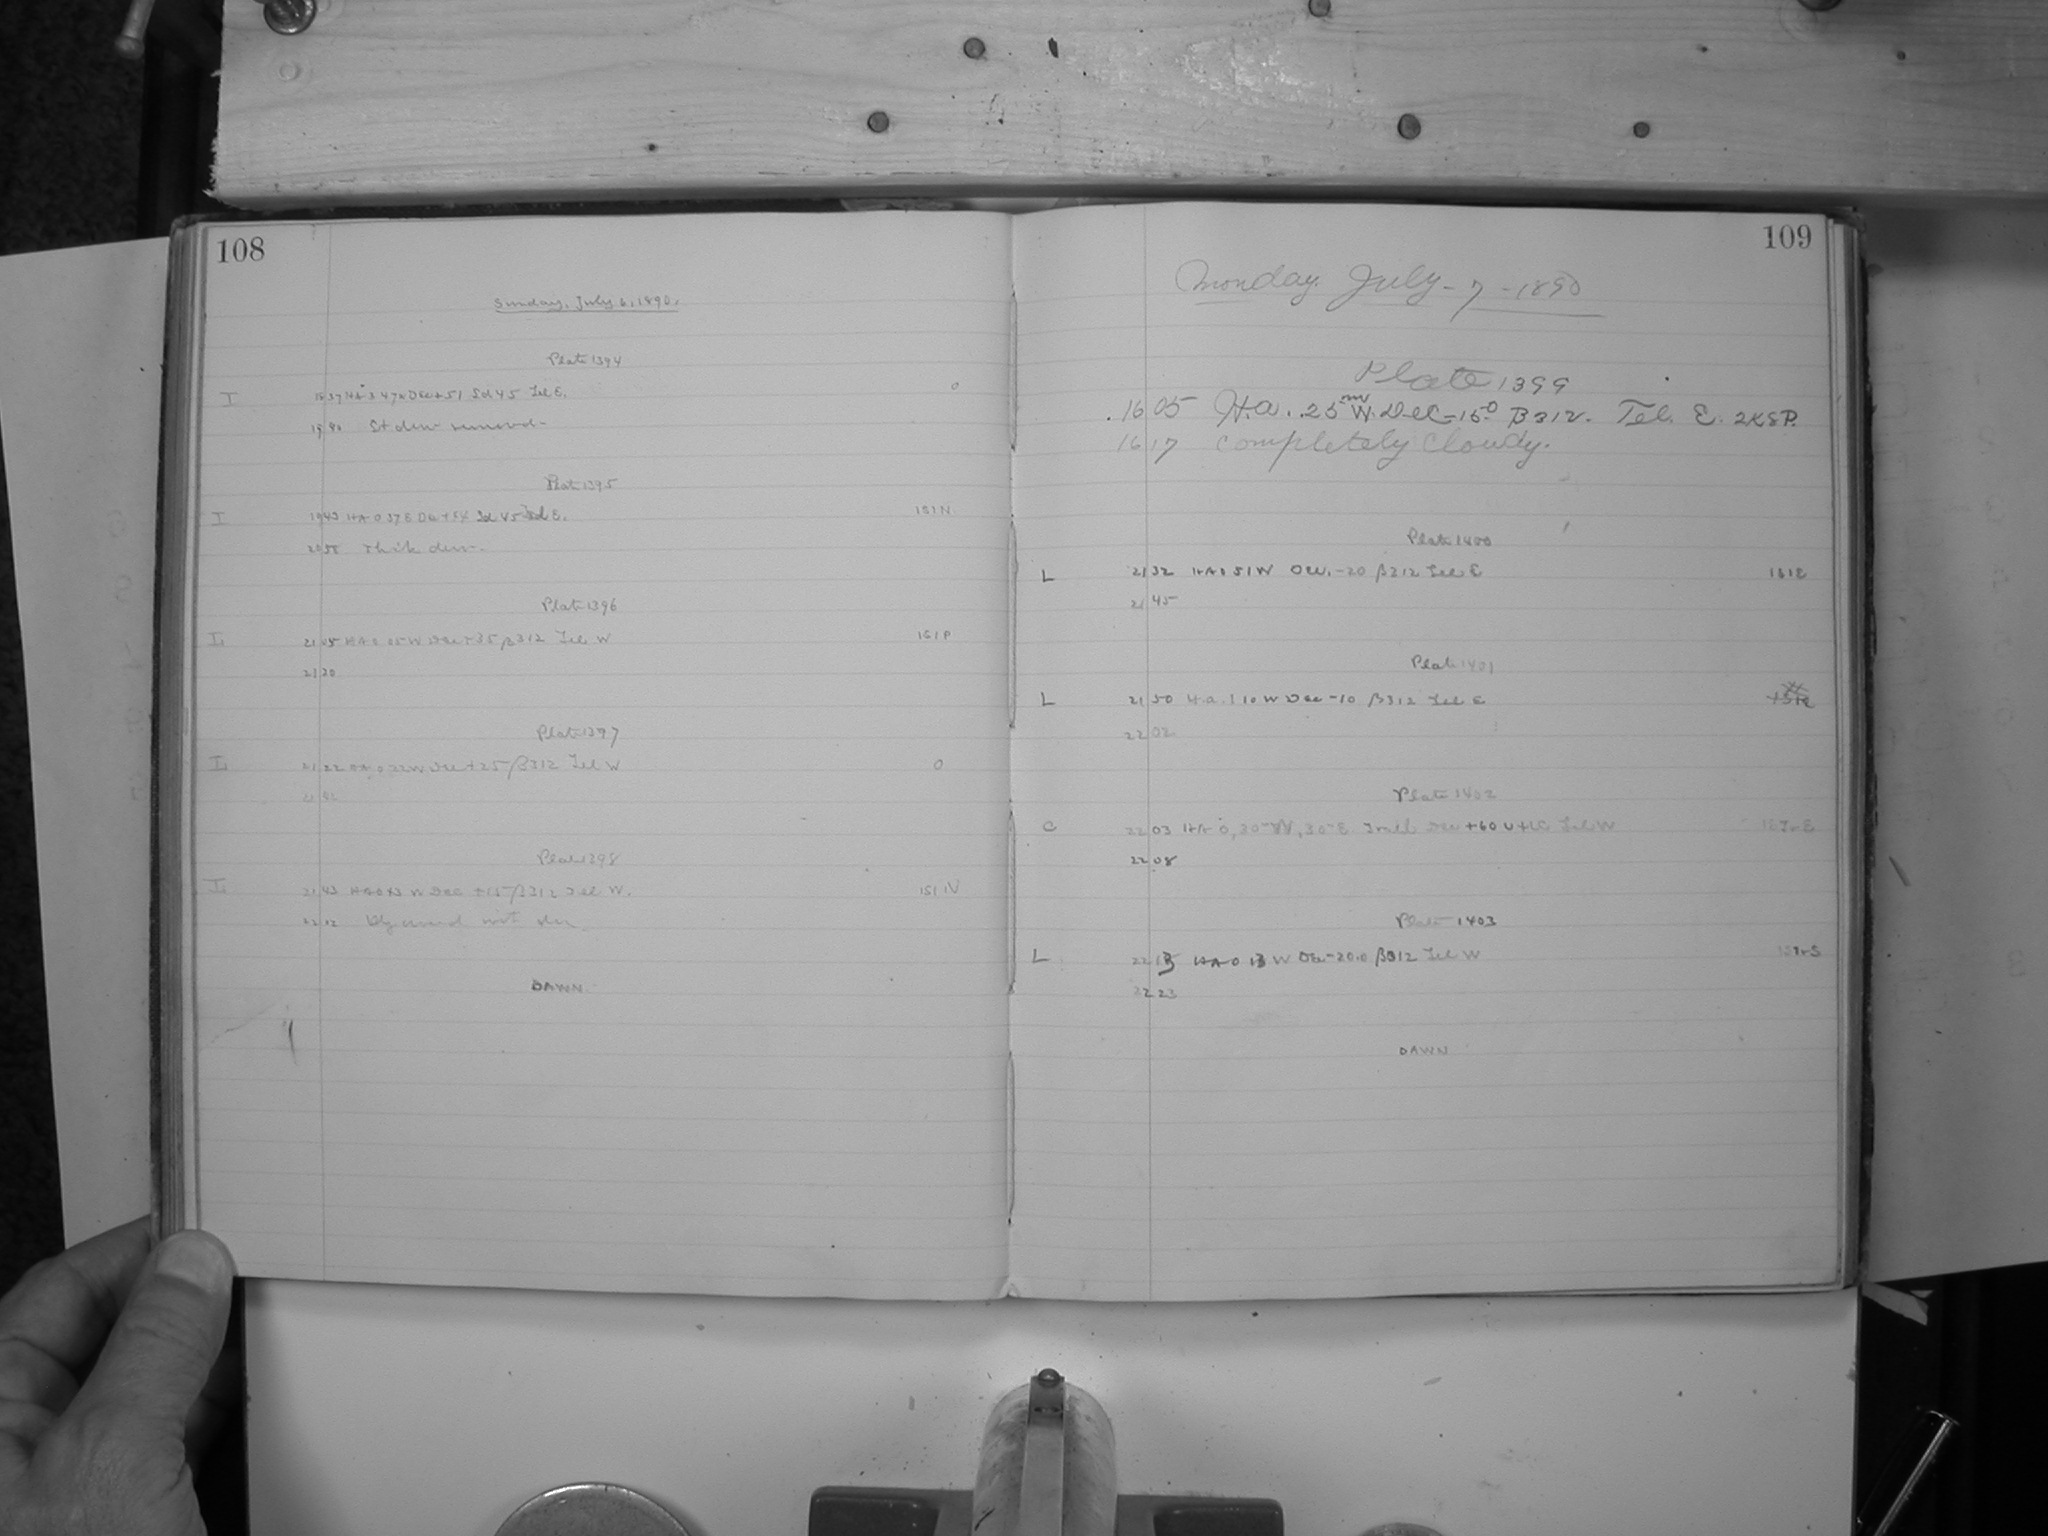 108
Sunday, July 6, 1890.
Plate 1394
I
Dec + 51 Sd 45 Tel E. 0
Plate 1395
I 1943 HA 0 37 E Dec + 54 Sd 45 Tel E. 151N
Thick dew.
Plate 1396
L 21 05 HA 0 05 W Dec + 35 β312 Tel W 151P
21 20
Plate 1397
L 21 22 HA 0 22 W Dec + 25 β312 Tel W 0
Plate 1398
L 21 43 HA 0 43 W Dec + 15 β312 Tel W. 151N
DAWN
109
Monday July - 7 - 1890
Plate 1399
16 05 H.a. 25m W. Dec - 15° β312. Tel. E. 2KSP.
16 17 Completely Cloudy.
Plate 1400
L 21 32 HA 0 51 W Dec. -20 β312 Tel E 151E
21 45
Plate 1401
L 21 50 H.a. 1 10 W Dec -10 β312 Tel E
22 02
Plate 1402
C 22 03 Trail Dec +60 U+LC Tel W
22 08
Plate 1403
L 22 13 HA 0 13 W Dec -20.0 β312 Tel W
22 23
DAWN